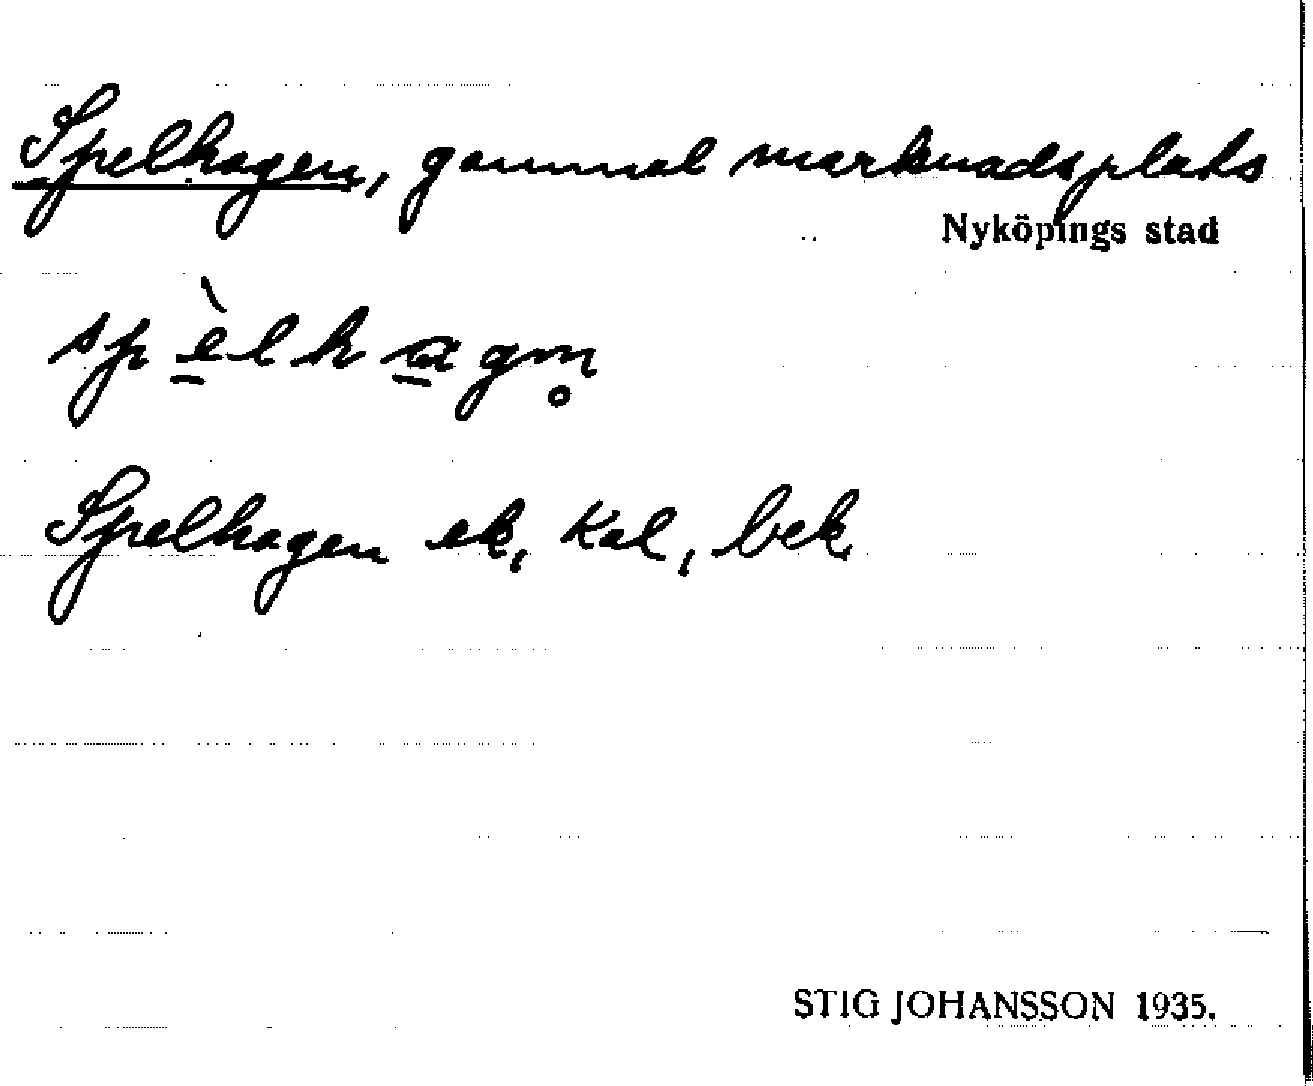 Spelhagen, gammal marknadsplats
Nyköpings stad
spèlhagn̥
Spelhagen ek, kal, bek
STIG JOHANSSON 1935.